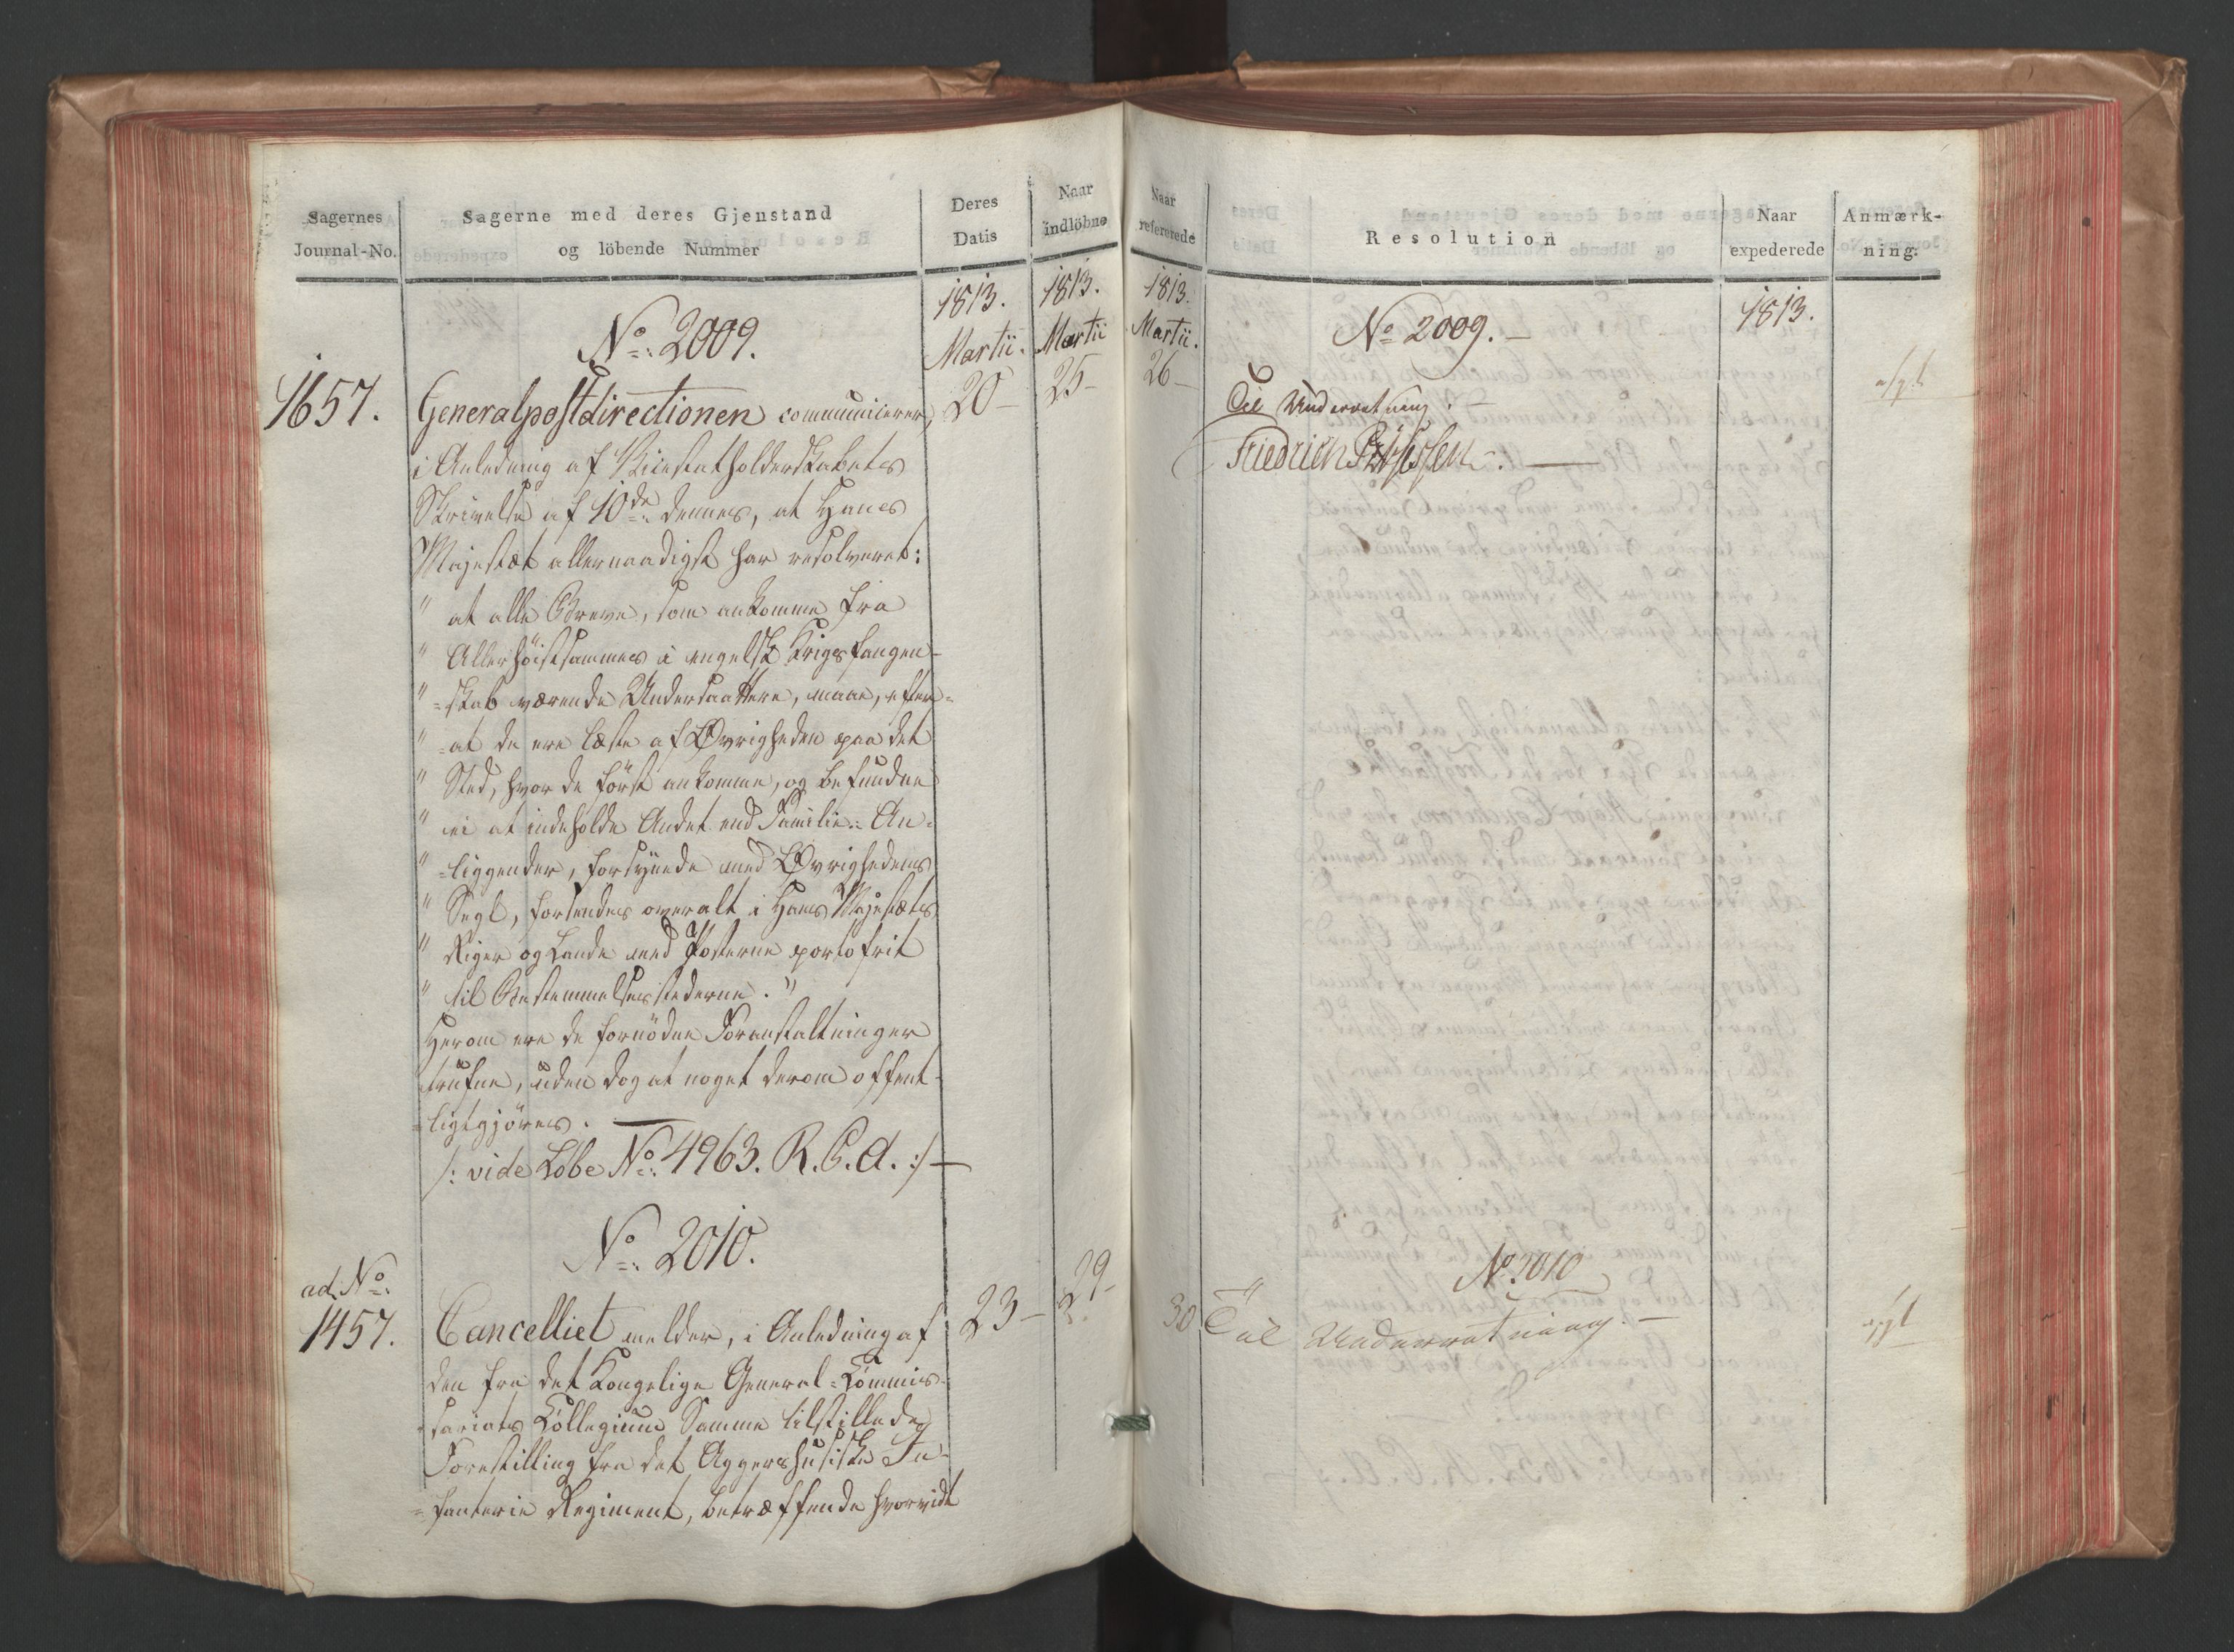 Sagernes
Journal-No.
Sagerne med deres Gjenstand
og löbende Nummer
Deres
Datis
Naar
indlöbne
1813.
Martii.
1813.
Martii
No. 2009.
1657.
20 —
25 —
Generalpostdirectionen communicerer,
i Anledning af Vicestatholderskabets
Skrivelse af 10de dennes, at Hans
Majestæt allernaadigst har resolveret:
" at alle Breve, som ankomme fra
" Allerhöistsammes i engelsk Krigsfangen-
" =skab værende Undersaattere, maae, efter=
" =at de ere læste af Øvrigheden paa det
" Sted, hvor de först ankomme, og befundne
" ei at indeholde Andet end Familie=An=
" =liggender, forsynede med Øvrighedens
" Segl, forsendes overalt i Hans Majestæts
" Riger og Lande med Posterne portofrit
" til Bestemmelsesstederne."
Herom ere de fornödne Foranstaltninger
trufne, uden dog at noget derom offent-
=ligtgjöres. —
/: vide Löbe No. 4963. R. C. A. :/ —
No. 2010.
ad No.
1457.
23 —
29 —
Cancelliet melder, i Anledning af
den fra det Kongelige General=Commis-
=sariats Collegium Samme tilstillede
Forestilling fra det Aggershusiske In=
=fanterie Regiment, betræffende hvorvidt
Naar
refererede
Resolution
Naar
expederede
Anmærk-
ning.
1813.
Martii.
26 —
No 2009. —
1813.
Til Underretning. —
Friedrich
No 2010
30
Til Underretning. —